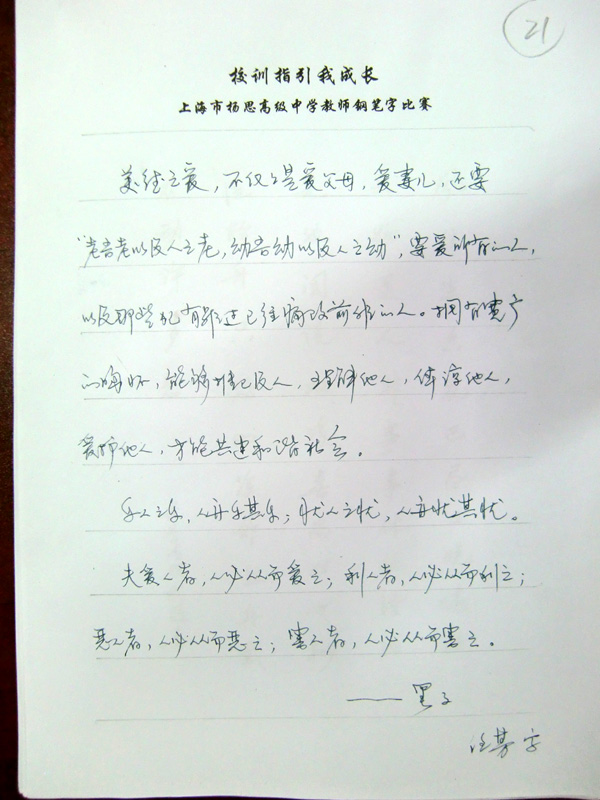 21
校训指引我成长
上海市杨思高级中学教师钢笔字比赛
之爱，不仅仅是爱父母，爱妻儿，还要
“老吾老以及人之老，幼吾幼以及人之幼”，要爱所有的人，
以及那些犯有罪过已经痛改前非的人。拥有宽广
的胸怀，能够推己及人，理解他人，体谅他人，
爱护他人，方能共建和谐社会。
乐人之乐，人亦乐其乐；忧人之忧，人亦忧其忧。
夫爱人者，人必从而爱之；利人者，人必从而利之；
恶人者，人必从而恶之；害人者，人必从而害之。
——墨子